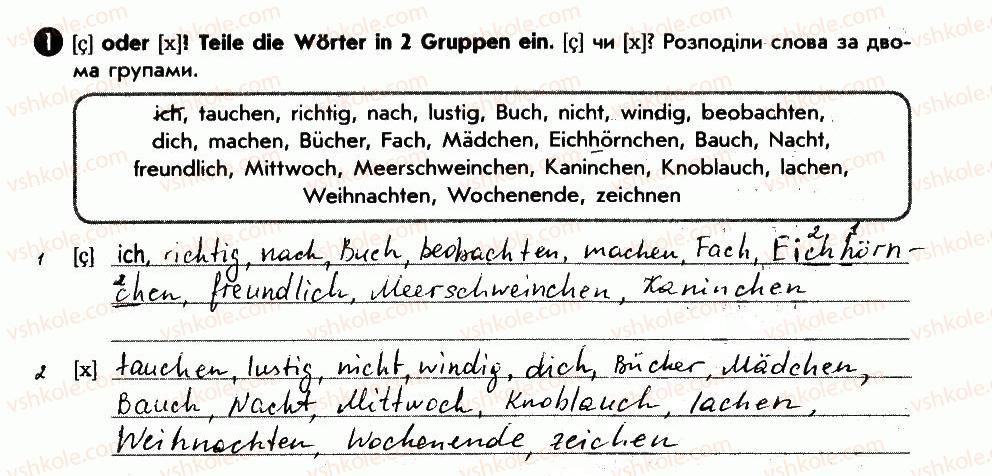 1 [ç] oder [x]? Teile die Wörter in 2 Gruppen ein. [ç] чи [x]? Розподіли слова за дво-
ма групами.
ich, tauchen, richtig, nach, lustig, Buch, nicht, windig, beobachten,
dich, machen, Bücher, Fach, Mädchen, Eichhörnchen, Bauch, Nacht,
freundlich, Mittwoch, Meerschweinchen, Kaninchen, Knoblauch, lachen,
Weihnachten, Wochenende, zeichnen
2 1
1 [ç] ich, richtig, nach, Buch, beobachten, machen, Fach, Eichhörn-
2
chen, freundlich, Meerschweinchen, Kaninchen
2 [x] tauchen, lustig, nicht, windig, dich, Bücher, Mädchen,
Bauch, Nacht, Mittwoch, Knoblauch, lachen,
Weihnachten, Wochenende, zeichen